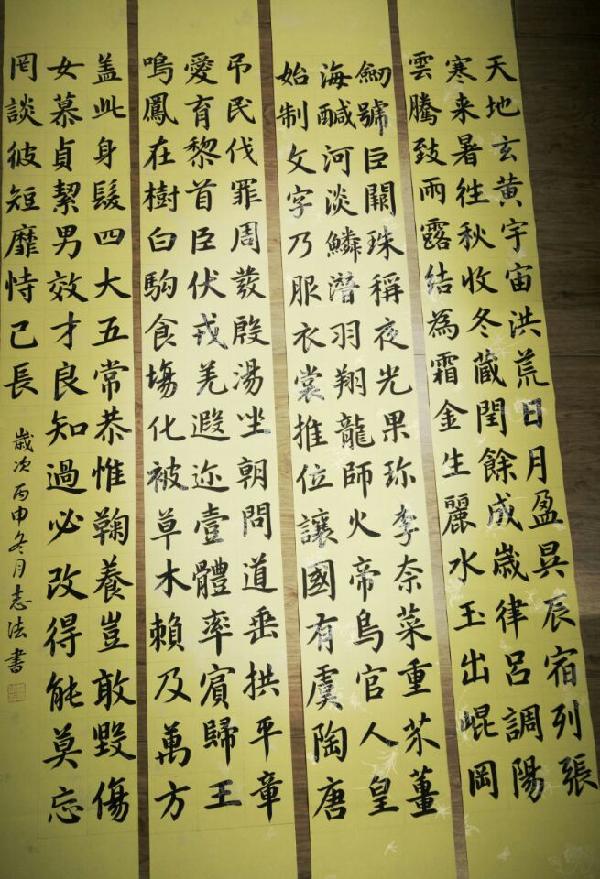 天地玄黄宇宙洪荒日月盈昃辰宿列張
寒来暑往秋收冬藏閏餘成歲律呂調陽
雲騰致雨露結為霜金生麗水玉出崐岡
劒號巨闕珠稱夜光果珎李奈菜重芥薑
海醎河淡鱗潛羽翔龍師火帝鳥官人皇
始制文字乃服衣裳推位讓國有虞陶唐
弔民伐罪周發殷湯坐朝問道垂拱平章
愛育黎首臣伏戎羌遐迩壹體率賓歸王
鳴鳳在樹白駒食塲化被草木賴及萬方
盖此身髮四大五常恭惟鞠養豈敢毀傷
女慕貞絜男效才良知過必改得能莫忘
罔談彼短靡恃己長
歲次丙申冬月志法書